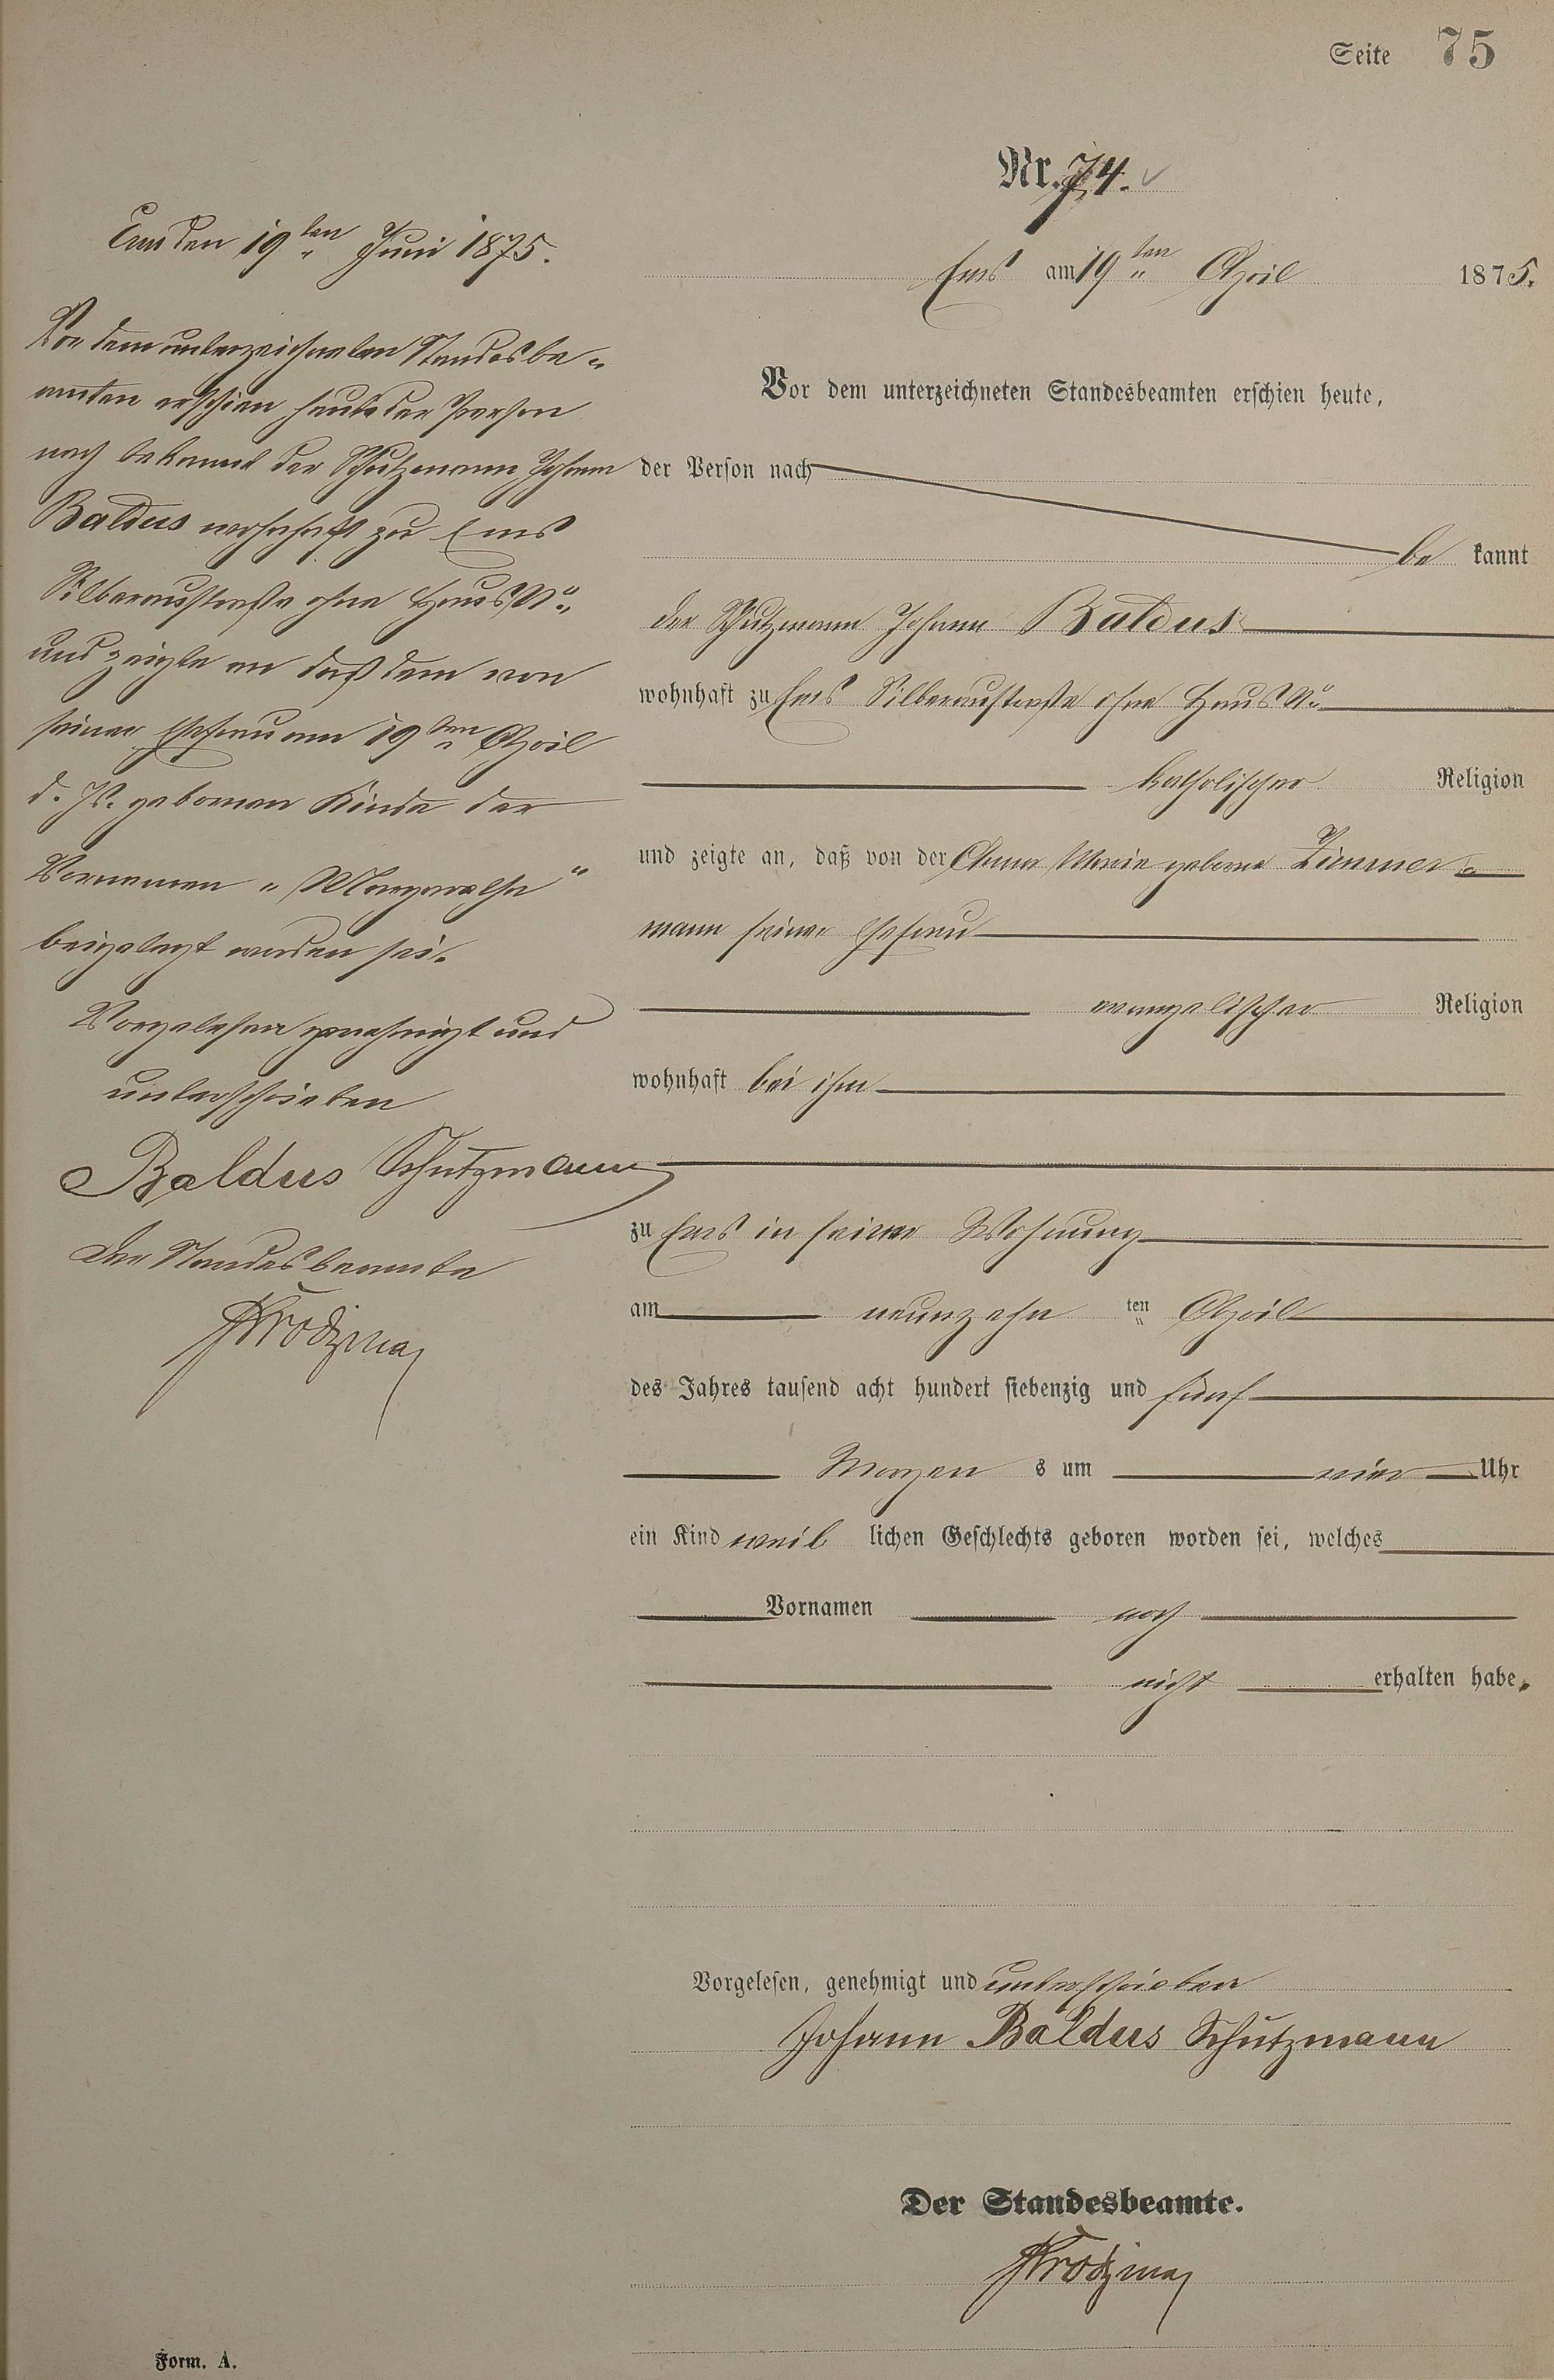 Seite 75
Nr. 74.
Ems den 19ten Juni 1875.
Vor dem unterzeichneten Standesbe-
amten erschien heute der Person
nach bekannt der Schutzmann Johann
Baldus wohnhaft zu Ems
Silberaustraße ohne Haus No.,
und zeigte an daß dem von
seiner Ehefrau am 19ten April
d. Js. geborenen Kinde der
Vornamen „Margarethe"
beigelegt worden sei.
Vorgelesen genehmigt und
unterschrieben
Baldus Schutzmann
Der Standesbeamte
Ems am 19ten April 1875.
Vor dem unterzeichneten Standesbeamten erschien heute,
der Person nach
be kannt
der Schutzmann Johann Baldus
wohnhaft zu Ems Silberaustraße ohne Haus No.
katholischer Religion
und zeigte an, daß von der Anna Maria geborne Zimmer-
mann seiner Ehefrau
evangelischer Religion
wohnhaft bei ihm
zu Ems in seiner Wohnung
am neunzehn ten April
des Jahres tausend acht hundert siebenzig und fünf
Morgen s um vier Uhr
ein Kind weib lichen Geschlechts geboren worden sei, welches
Vornamen noch
nicht erhalten habe.
Vorgelesen, genehmigt und unterschrieben
Johann Baldus Schutzmann
Der Standesbeamte.
Form. A.